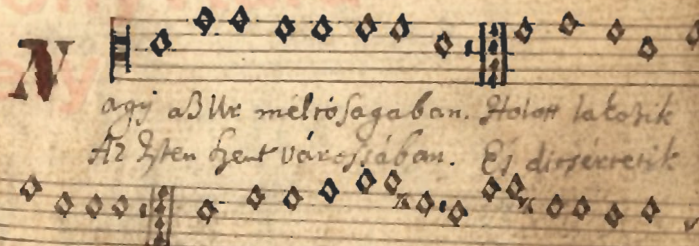 Nagÿ aß Ur méltóſagaban. Holott lakozik
Az Iſten ßent városſában. És dicsértetik